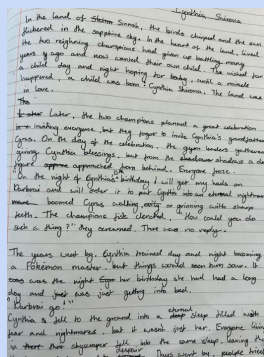 Cynthia Shirona
In the land of Sinnoh, the birds chirped and the sun
flickered in the sapphire sky. In the heart of the land, lived
the two reighning champions had given up battling many
years ago and now wanted their own child. The wished for
a child day and night hoping for baby, until a miracle
happened, a child was born: Cynthia Shirona. The land was
in love.
Later, the two champions planned a great celebration
inviting everyone, but they forgot to invite Cynthia's grandfather
Cyrus. On the day of the celebration, the gym leaders gathered
giving Cynthia blessings, but from the shadows a dark
figure approached from behind. Everyone froze.
"On the night of Cynthia's birthday I will get my hands on
Darkrai and will order it to put Cynthia into an eternal nightmare
boomed Cyrus walking or grinning with sharp
teeth. The champions fists clenched. "How could you do
such a thing?" they screamed. There was no reply.
The years went by. Cynthia trained day and night becoming
a Pokémon master, but things would soon turn sour. It
was the night her birthday she had had a long
day and was just getting into bed.
"Darkrai go."
Cynthia a fell to the ground into a eternal sleep filled with
fear and nightmares. but it wasn't just her. Everyone living
in skyscraper fell into the same sleep, leaving the
despair Years went by, people tried